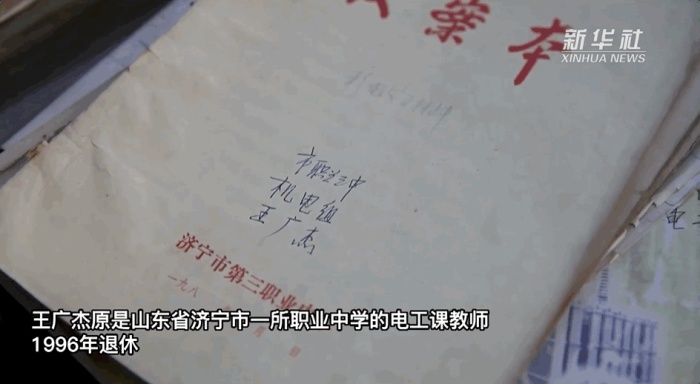 案本
新华社
XINHUA NEWS
市职三中
机电组
王广杰
济宁市第三职业中
一九八
月 日
电
王广杰原是山东省济宁市一所职业中学的电工课教师
1996年退休